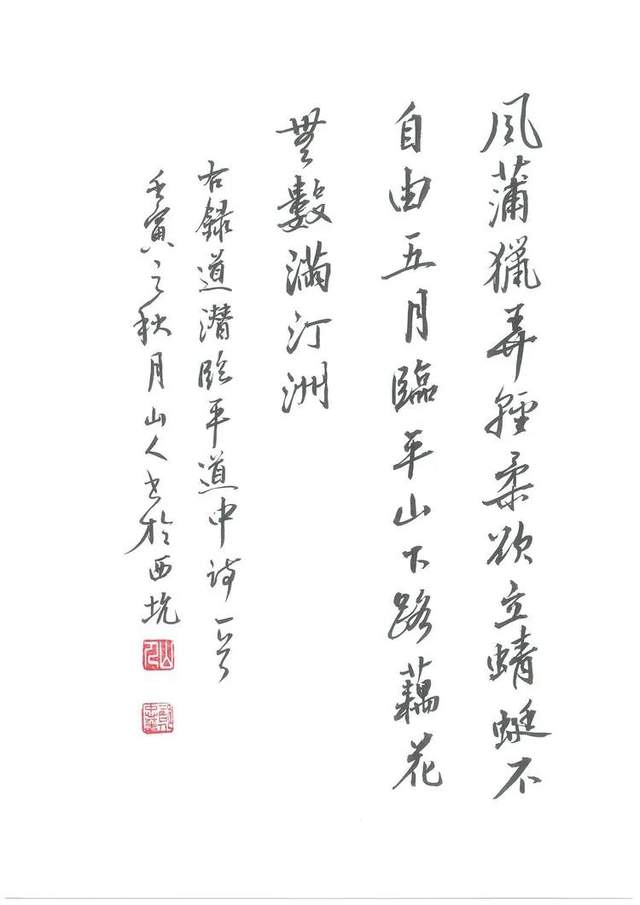 風蒲獵弄輕柔欲立蜻蜓不
自由五月臨平山下路藕花
無數滿汀洲
右録道潛臨平道中詩一首
壬寅之秋月山人书於西坑
山人